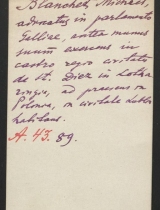 Blanchet, Michael,
advocatus in parlamento
Galliae, extra munus
suum exercens in
castro regio civitate
de St. Diez in Lotha
ringia, ad praesens in
Polonia, in civitate
habitans.
A. 43. 89.